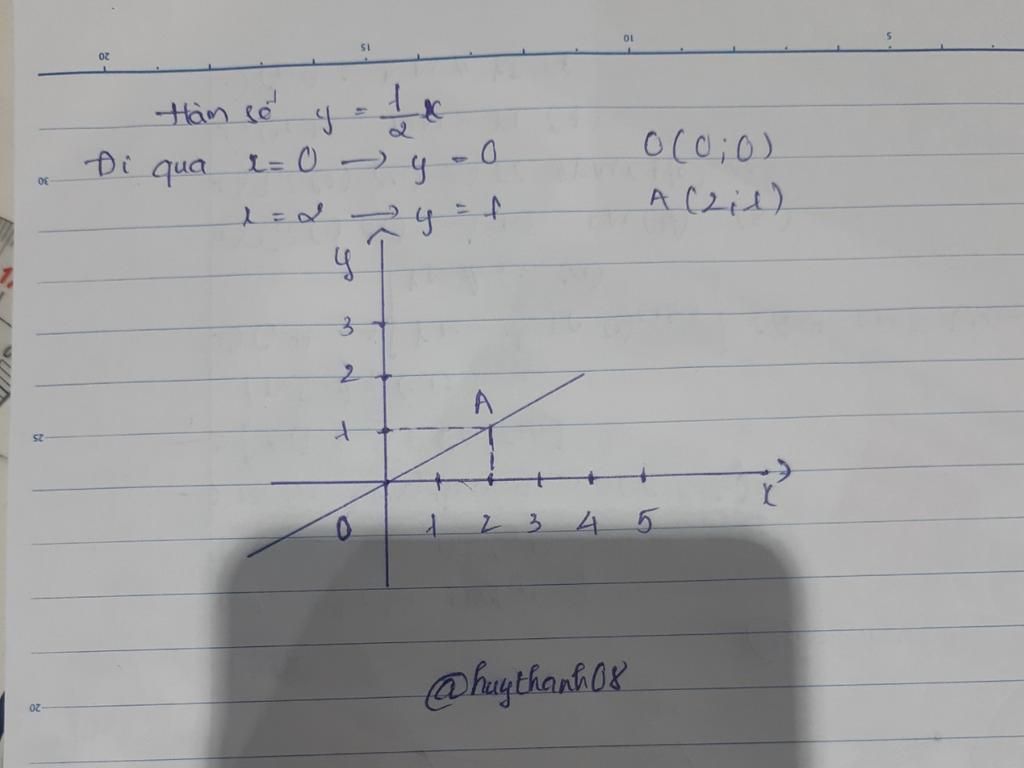 20 15 10 5
Hàm số y = 1/2 x
Đi qua x = 0 → y = 0 O(0;0)
30
x = 2 → y = 1 A(2;1)
y
3
2
A
1
25
x
0 1 2 3 4 5
@huythanh08
20